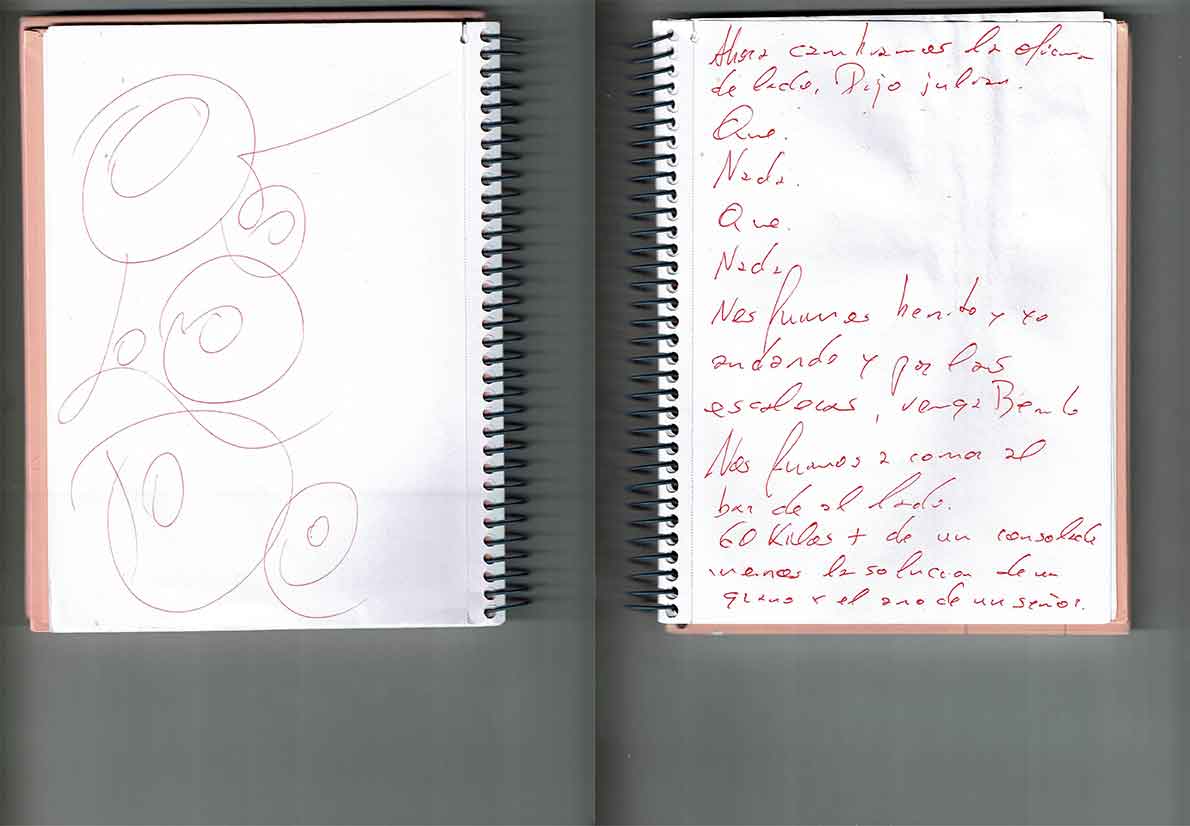 Ahora cambiamos la oficina
de lado, Dijo julian.
Que.
Nada.
Que.
Nada
Nos fuimos benito y yo
andando y por las
escaleras, venga Benito
Nos fuimos a comer al
bar de al lado.
60 Kilos + de un
la solucion de un
grano x el ano de un señor.